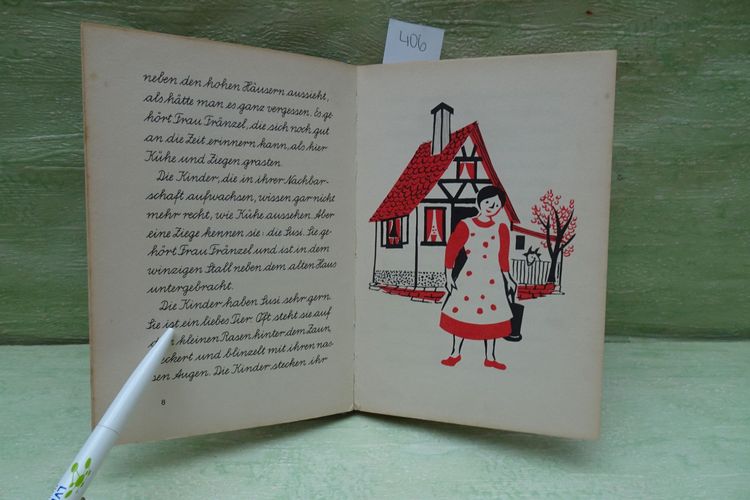 neben den hohen Häusern aussieht,
als hätte man es ganz vergessen. Es ge-
hört Frau Fränzel, die sich noch gut
an die Zeit erinnern kann, als hier
Kühe und Ziegen grasten.
Die Kinder, die in ihrer Nachbar-
schaft aufwachsen, wissen gar nicht
mehr recht, wie Kühe aussehen. Aber
eine Ziege kennen sie: die Susi. Sie ge-
hört Frau Fränzel und ist in dem
winzigen Stall neben dem alten Haus
untergebracht.
Die Kinder haben Susi sehr gern.
Sie ist ein liebes Tier. Oft steht sie auf
kleinen Rasen hinter dem Zaun
und blinzelt mit ihren nas-
sen Augen. Die Kinder stecken ihr
8
406